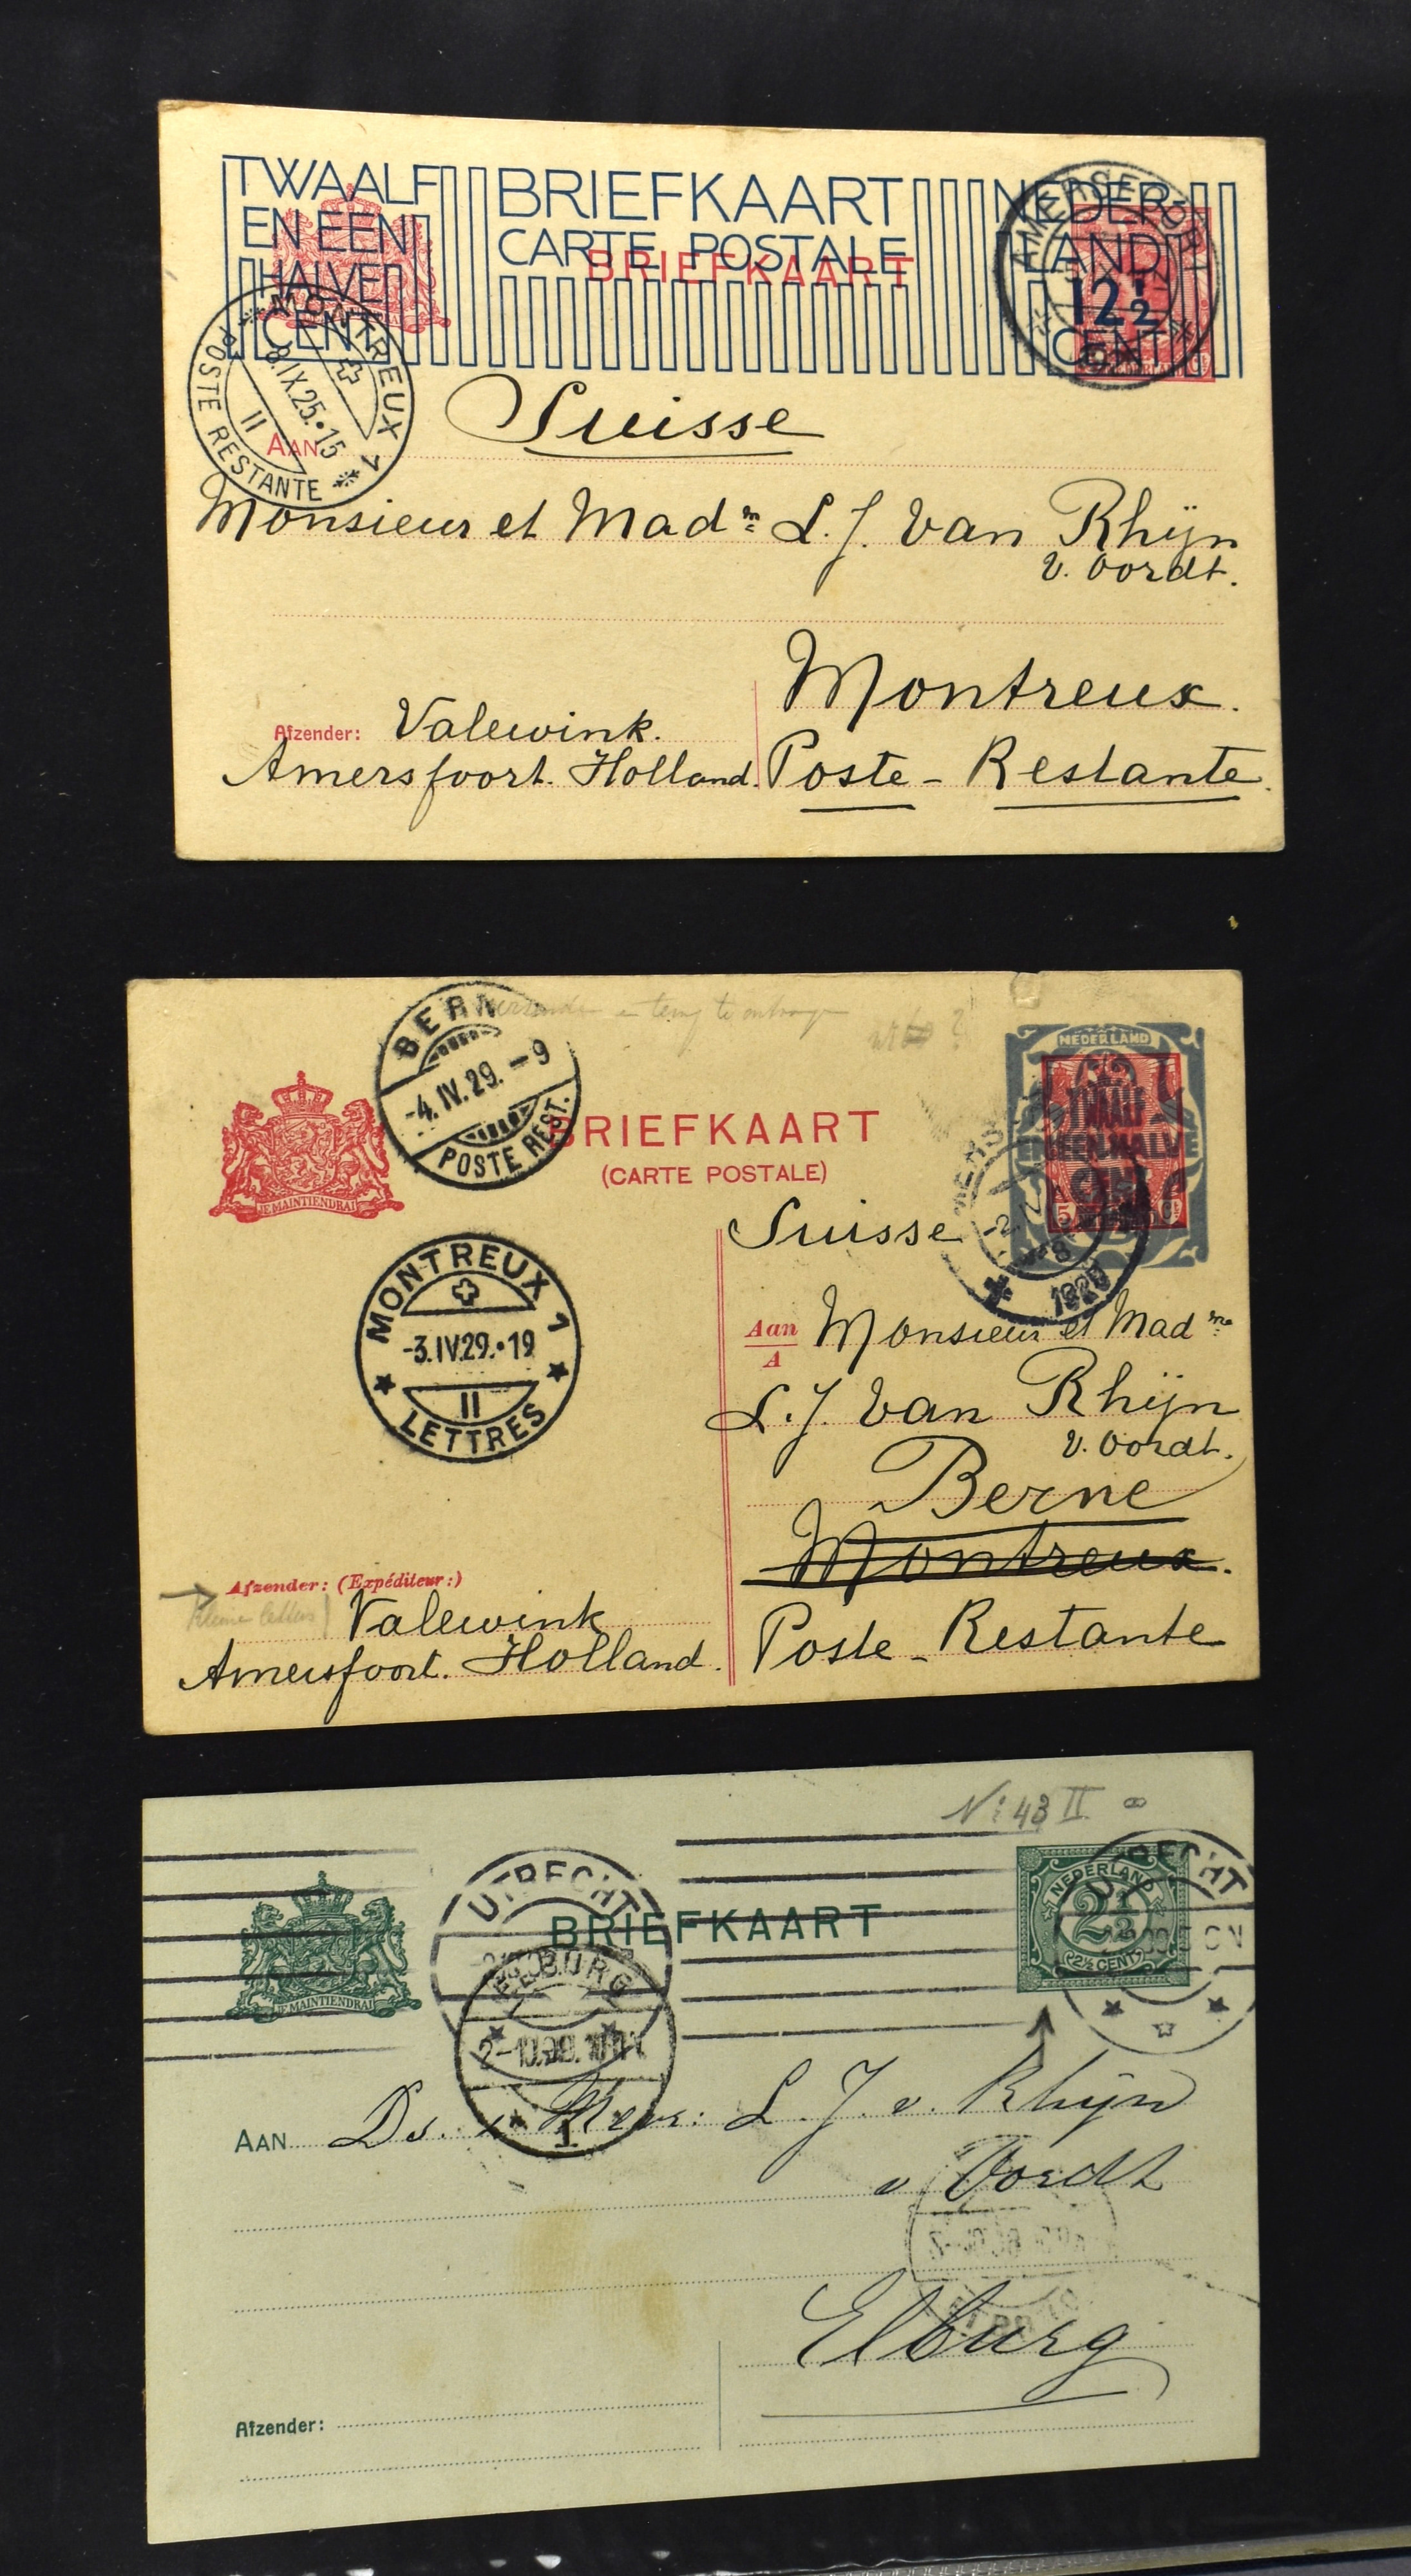 TWAALF
EN EEN
HALVE
CENT
BRIEFKAART
CARTE POSTALE
BRIEFKAART
NEDER
LAND
12½
CENT
AMERSFOORT
MONTREUX 1
8.IX.25.15
II
POSTE RESTANTE
Suisse
AAN
Monsieur et Madm L. J. Van Rhijn
v. Oordt.
Montreux.
Afzender: Valewink.
Amersfoort. Holland. Poste-Restante.
BERN
-4.IV.29.-9
POSTE REST.
NEDERLAND
TWAALF
EN EEN HALVE
BRIEFKAART
(CARTE POSTALE)
JE MAINTIENDRAI
Suisse
MONTREUX 1
-3.IV.29.•19
II
LETTRES
Aan
A
Monsieur et Madme
L. J. Van Rhijn
v. Oordt.
Berne
Montreux.
Afzender: (Expéditeur:)
Kleine letters
Valewink
Amersfoort. Holland.
Poste-Restante
No 43 II
UTRECHT
BRIEFKAART
NEDERLAND
2½
2½ CENT
UTRECHT
JE MAINTIENDRAI
ELBURG
1
AAN Ds. x Mevr: L. J. v. Rhijn
v Oordt
Elburg
Afzender: